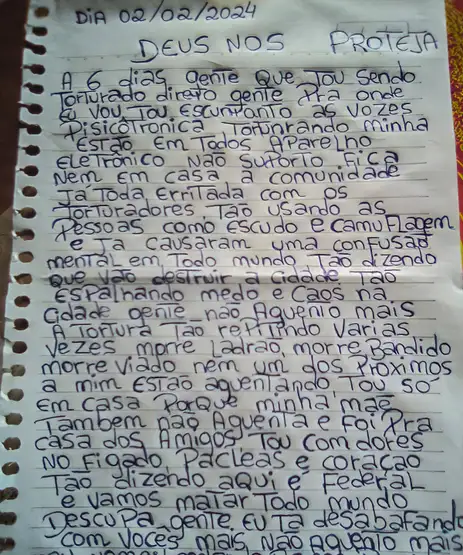 DiA 02/02/2024
DEUS NOS PROTEJA
A 6 dias gente QUE TOU SENDO
Torturado direto gente Pra onde
EU VOU TOU ESCUNTONTO as VOZES
PISICOTRONICA TORTUNRANDO minha
ESTÃO EM TODOS APARelho
eleTRÔNICO NÃO SUPORTO FICA
Nem EM CASA a comunidade
TÁ Toda ERRITADA com OS
TORTURADORES TÃO USANDO AS
PESSOAS como ESCUDO e CamUFLagem
e TA CAUSARAM UMA CONFUSAO
mental em Todo mundo TÃO dizendo
QUE VÃO destRUIR a CIdade TÃO
ESPALHANDO medo e CAOS na
Cidade gente não AGUENTO mais
A TORTURA TÃO REPITINDO VARIAS
VEZES morre LadRÃO, morre Bandido
morre Viado nem um dos PRÓXIMOS
a mim ESTÃO aguentando TOU SÓ
EM CASA PORQUE minha mãe
Também não AGUENTA e FOI PRA
CASA dos AMIGOS TOU COM dores
NO FIGADO, PACLEAS e coração
TÃO dizendo AQUI é FedeRAL
e VAMOS maTAR TODO mundo
DESCUPA gente EU TÁ desabafando
com VOCES mais NÃO AGUENTO mais